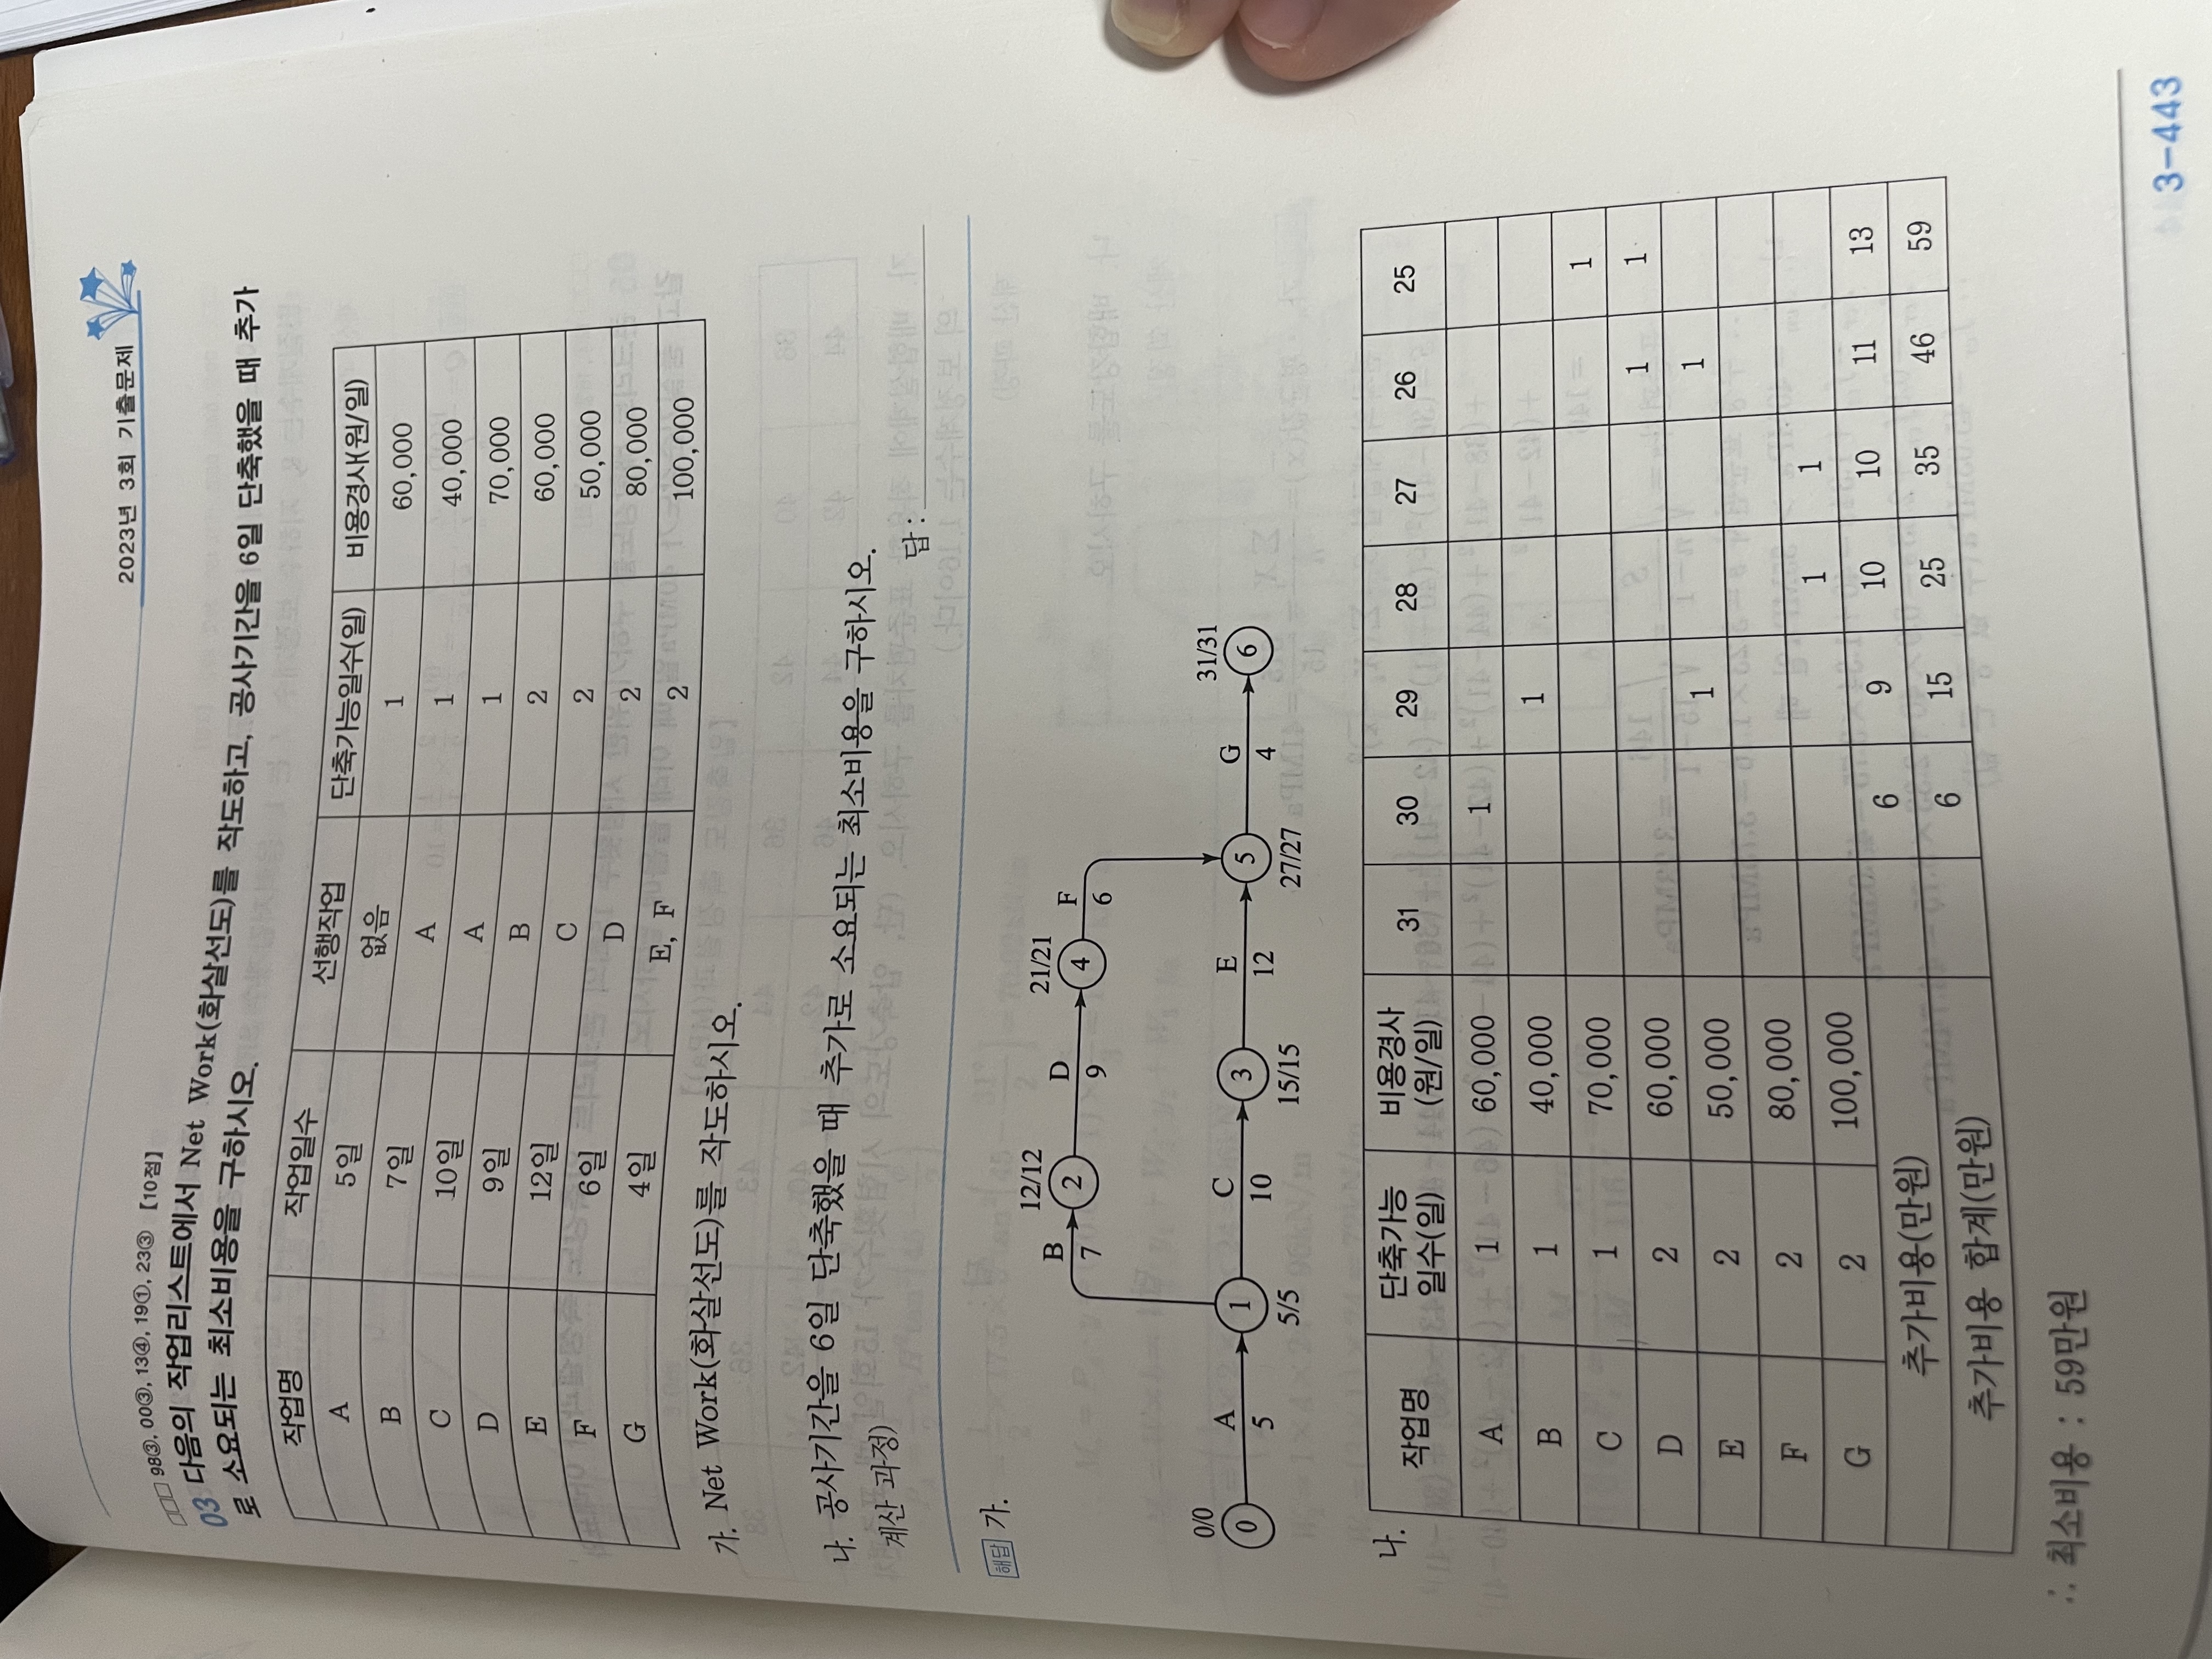 2023년 3회 기출문제
□□□ 98③, 00③, 13④, 19①, 23③ 【10점】
03 다음의 작업리스트에서 Net Work(화살선도)를 작도하고, 공사기간을 6일 단축했을 때 추가
로 소요되는 최소비용을 구하시오.
작업명 작업일수 선행작업 단축가능일수(일) 비용경사(원/일)
A 5일 없음 1 60,000
B 7일 A 1 40,000
C 10일 A 1 70,000
D 9일 B 2 60,000
E 12일 C 2 50,000
F 6일 D 2 80,000
G 4일 E, F 2 100,000
가. Net Work(화살선도)를 작도하시오.
나. 공사기간을 6일 단축했을 때 추가로 소요되는 최소비용을 구하시오.
계산 과정) 답 :
해답 가.
12/12 21/21
B D F
2 4
7 9 6
0/0 31/31
A C E G
0 1 3 5 6
5 10 12 4
5/5 15/15 27/27
나.
작업명 단축가능 일수(일) 비용경사 (원/일) 31 30 29 28 27 26 25
A 1 60,000 1
B 1 40,000 1
C 1 70,000 1
D 2 60,000 1 1
E 2 50,000 1 1
F 2 80,000
G 2 100,000 1 1
추가비용(만원) 6 9 10 10 11 13
추가비용 합계(만원) 6 15 25 35 46 59
∴ 최소비용 : 59만원
3-443